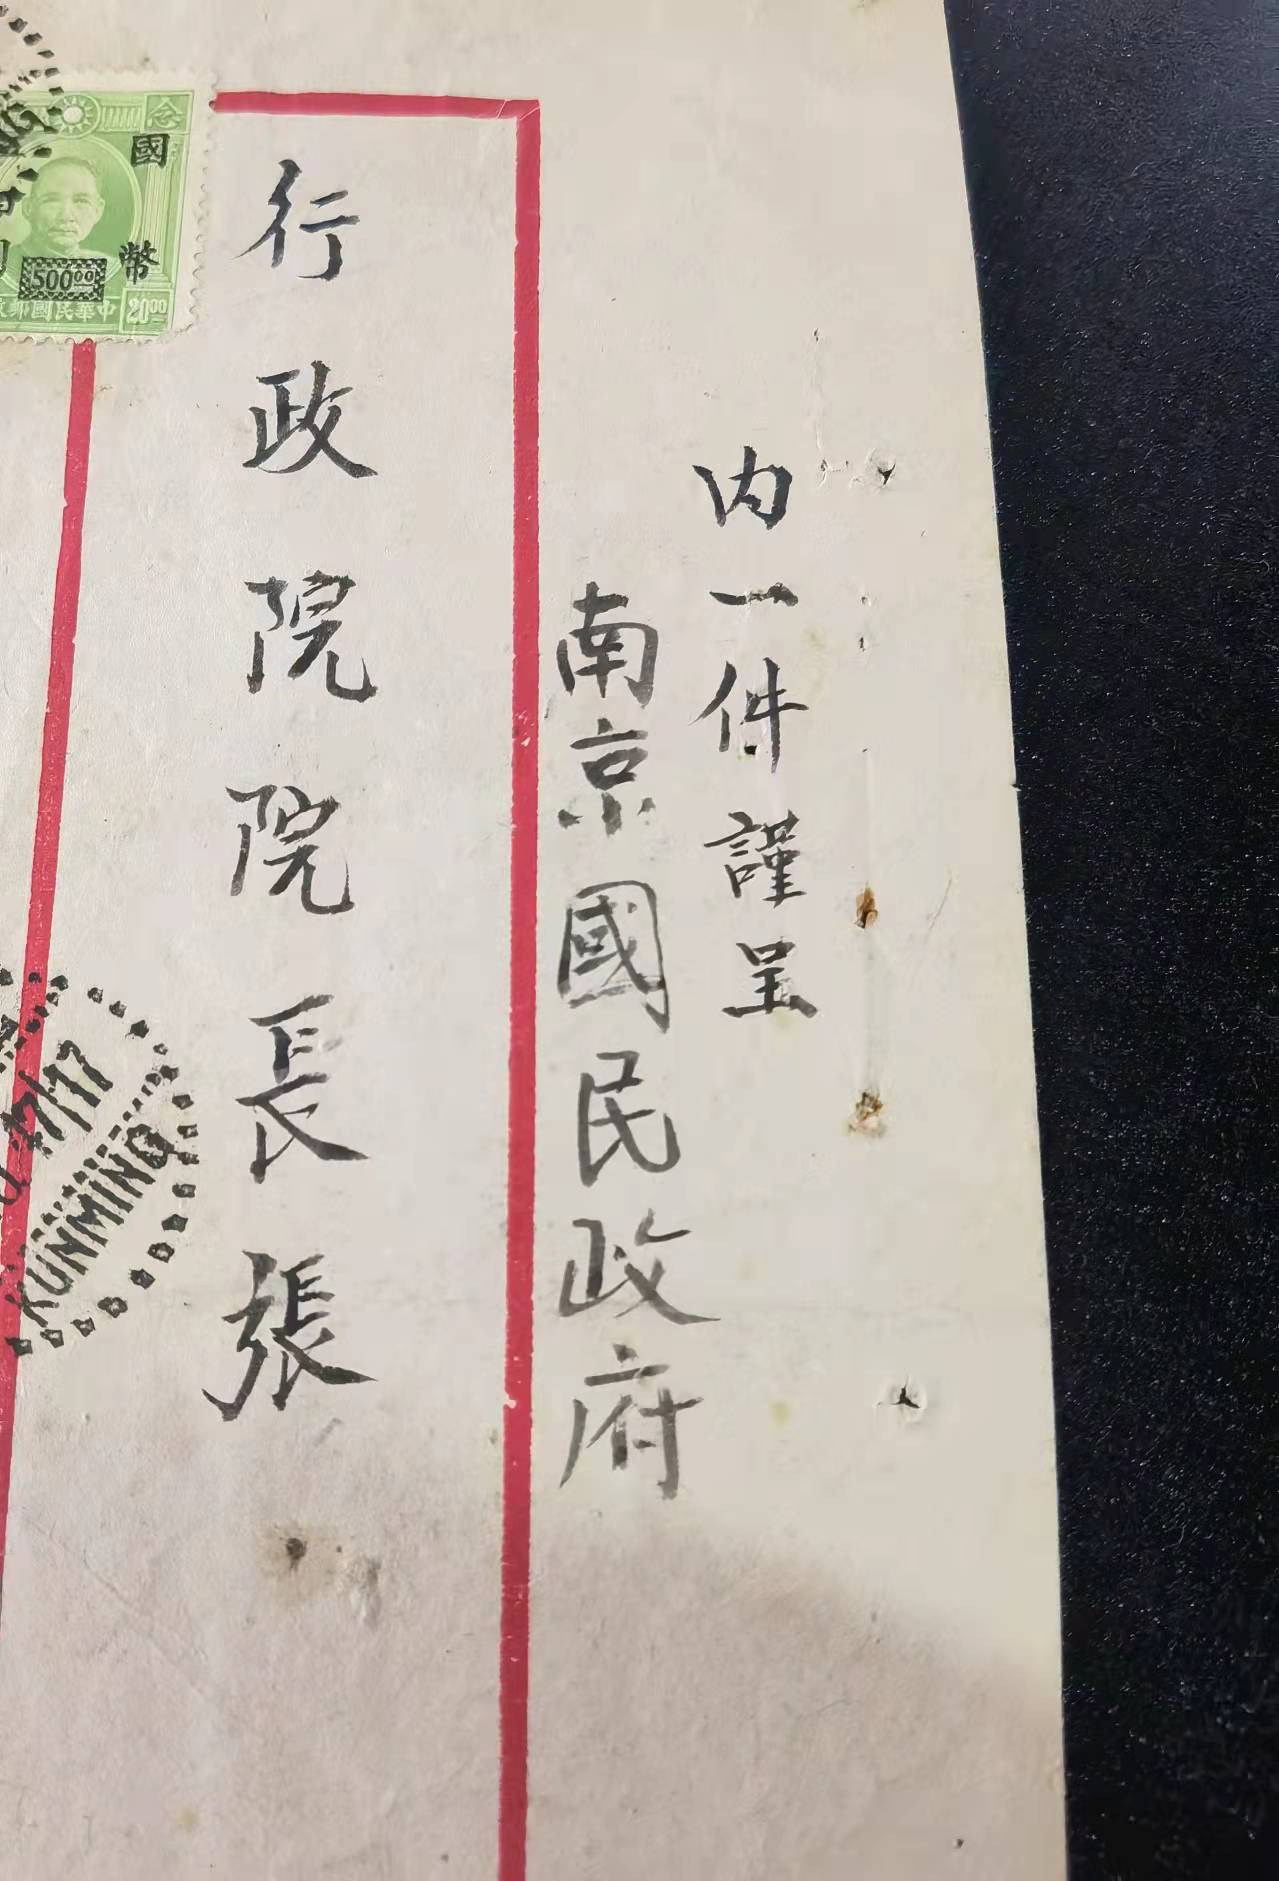 内一件謹呈
南京國民政府
行政院院長張
念
國
幣
500.00
中華民國郵政
20.00
47/17
KUNMING